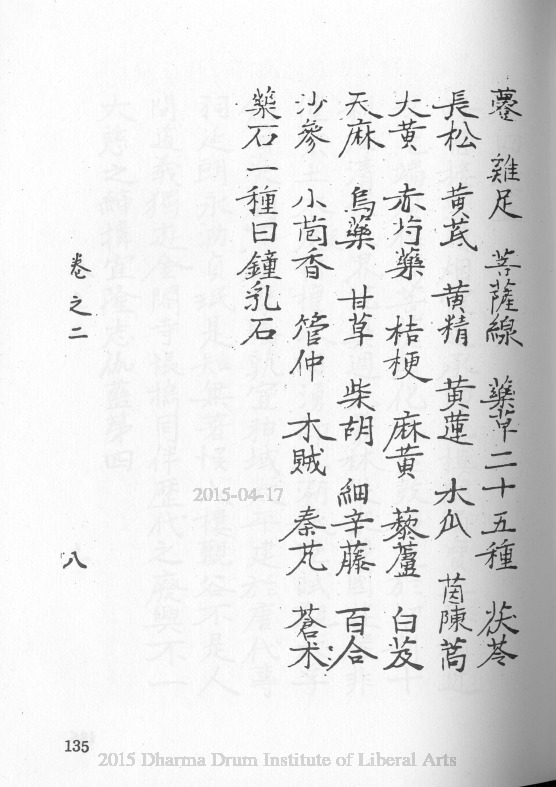 薹 雞足 菩薩線 藥草二十五種 茯苓
長松 黃芪 黃精 黃蓮 木瓜 茵陳蒿
大黃 赤芍藥 桔梗 麻黃 藜蘆 白芨
天麻 烏藥 甘草 柴胡 細辛藤 百合
沙參 小茴香 管仲 木賊 秦艽 蒼术
藥石一種曰鐘乳石
卷之二
八
135
2015-04-17
2015 Dharma Drum Institute of Liberal Arts